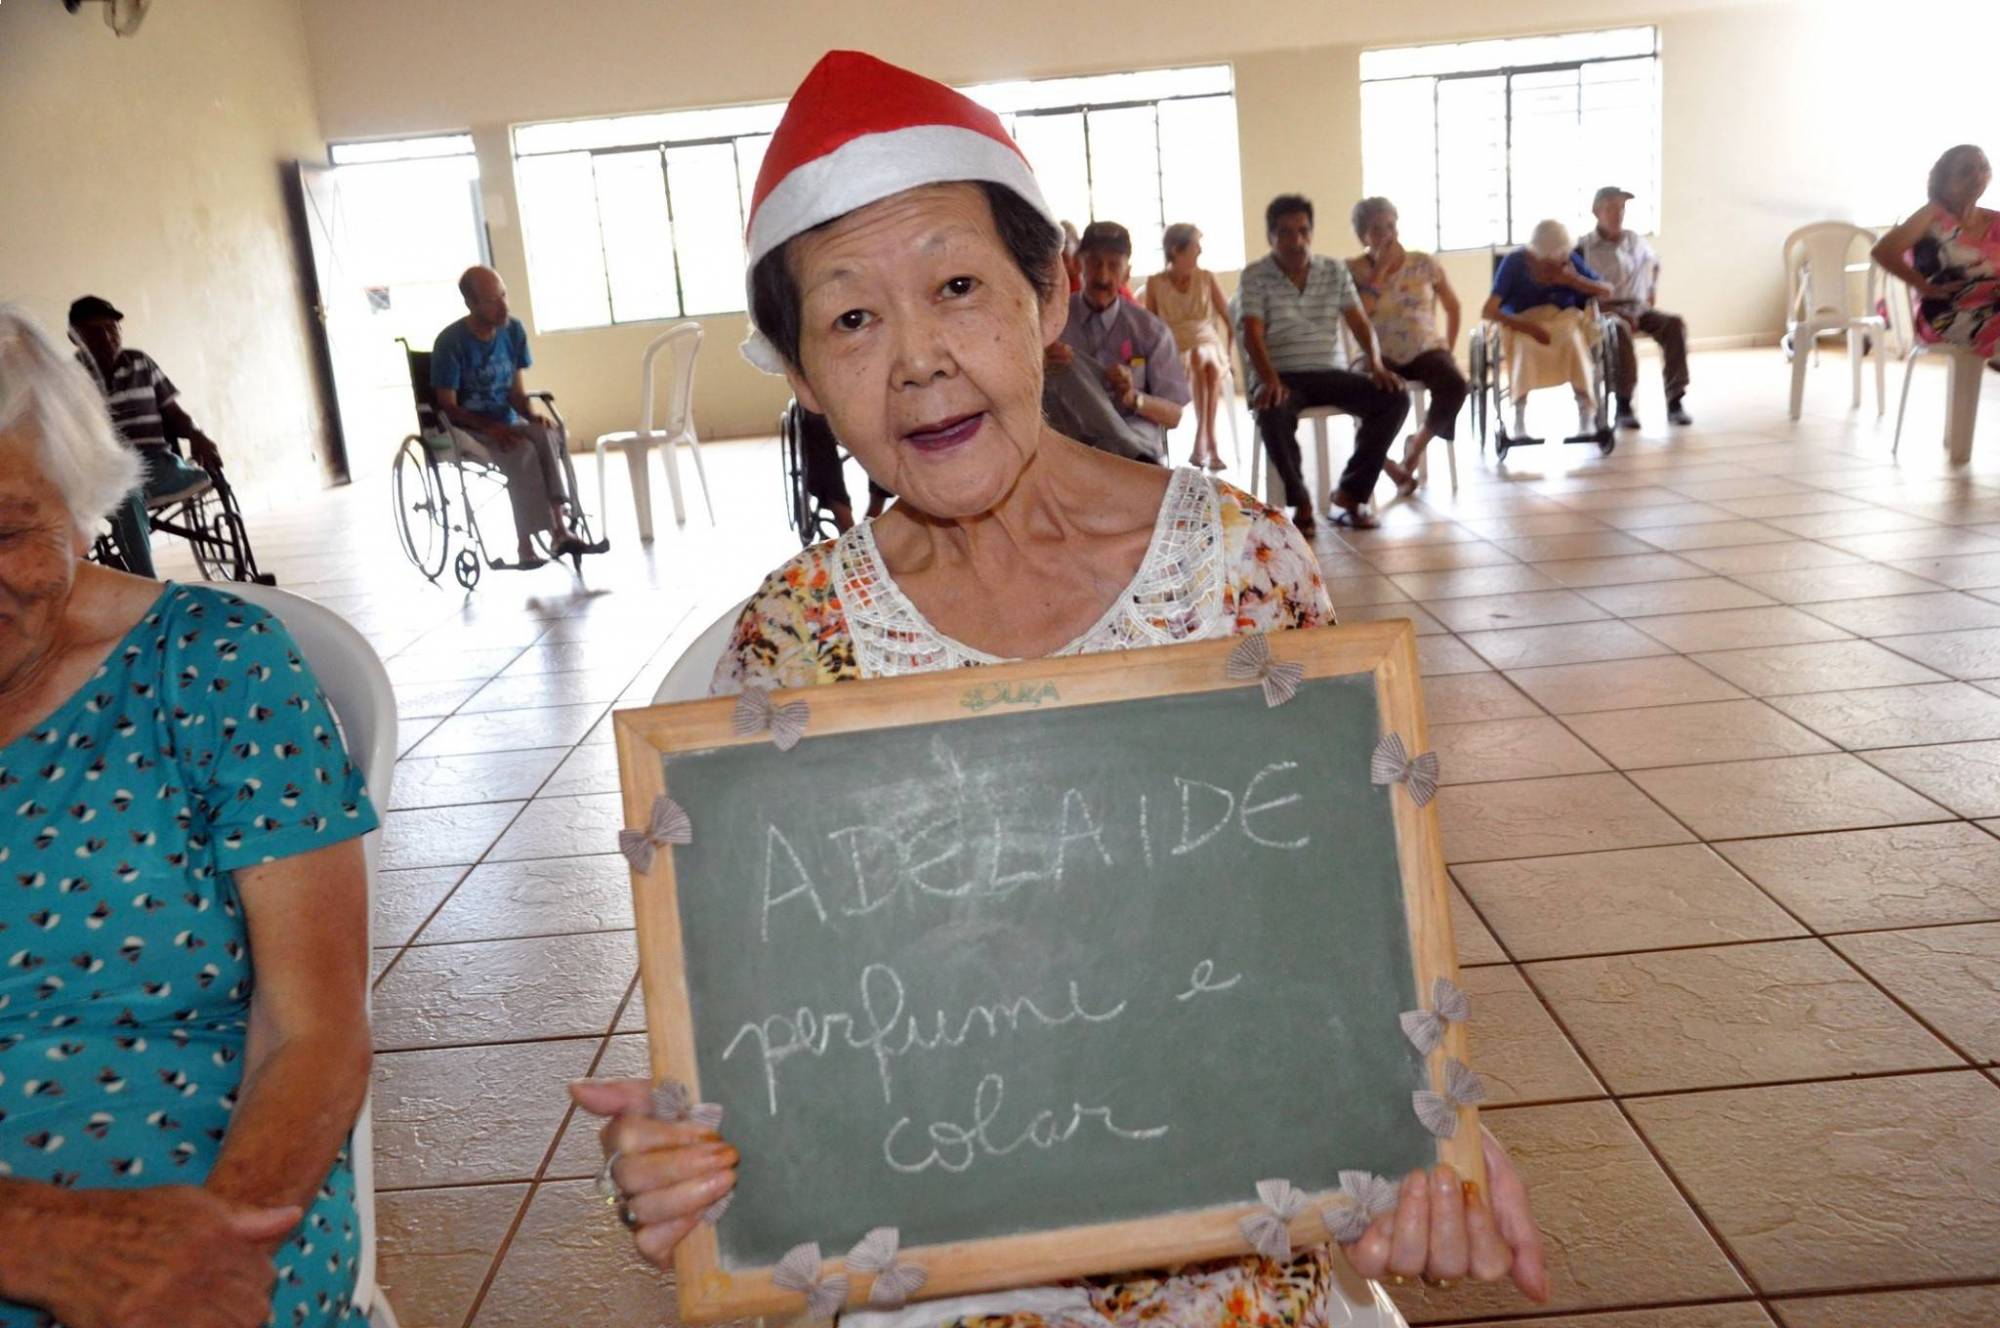 SOUZA
ADELAIDE
perfume e
colar